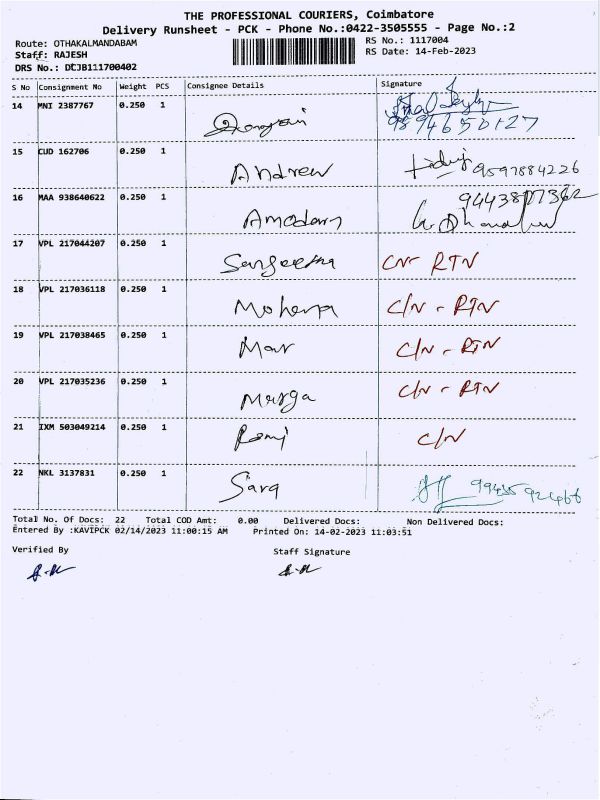 THE PROFESSIONAL COURIERS, Coimbatore
Delivery Runsheet - PCK - Phone No.:0422-3505555 - Page No.:2
Route: OTHAKALMANDABAM
RS No.: 1117004
Staff: RAJESH
RS Date: 14-Feb-2023
DRS No.: DCJB111700402
S No Consignment No Weight PCS Consignee Details Signature
14 MNI 2387767 0.250 1
9894650127
15 CUD 162706 0.250 1 Andrew 9597884226
16 MAA 938640622 0.250 1
17 VPL 217044207 0.250 1 Sangeetha CN- RTN
18 VPL 217036118 0.250 1 C/N - RTN
19 VPL 217038465 0.250 1 C/N - RTN
20 VPL 217035236 0.250 1 C/N - RTN
21 IXM 503049214 0.250 1 C/N
22 NKL 3137831 0.250 1 Sara
Total No. Of Docs: 22 Total COD Amt: 0.00 Delivered Docs: Non Delivered Docs:
Entered By :KAVIPCK 02/14/2023 11:00:15 AM Printed On: 14-02-2023 11:03:51
Verified By Staff Signature